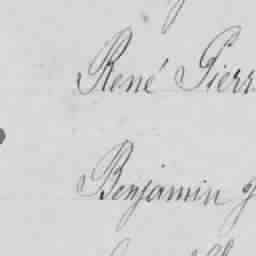 René Pierr
Benjamin